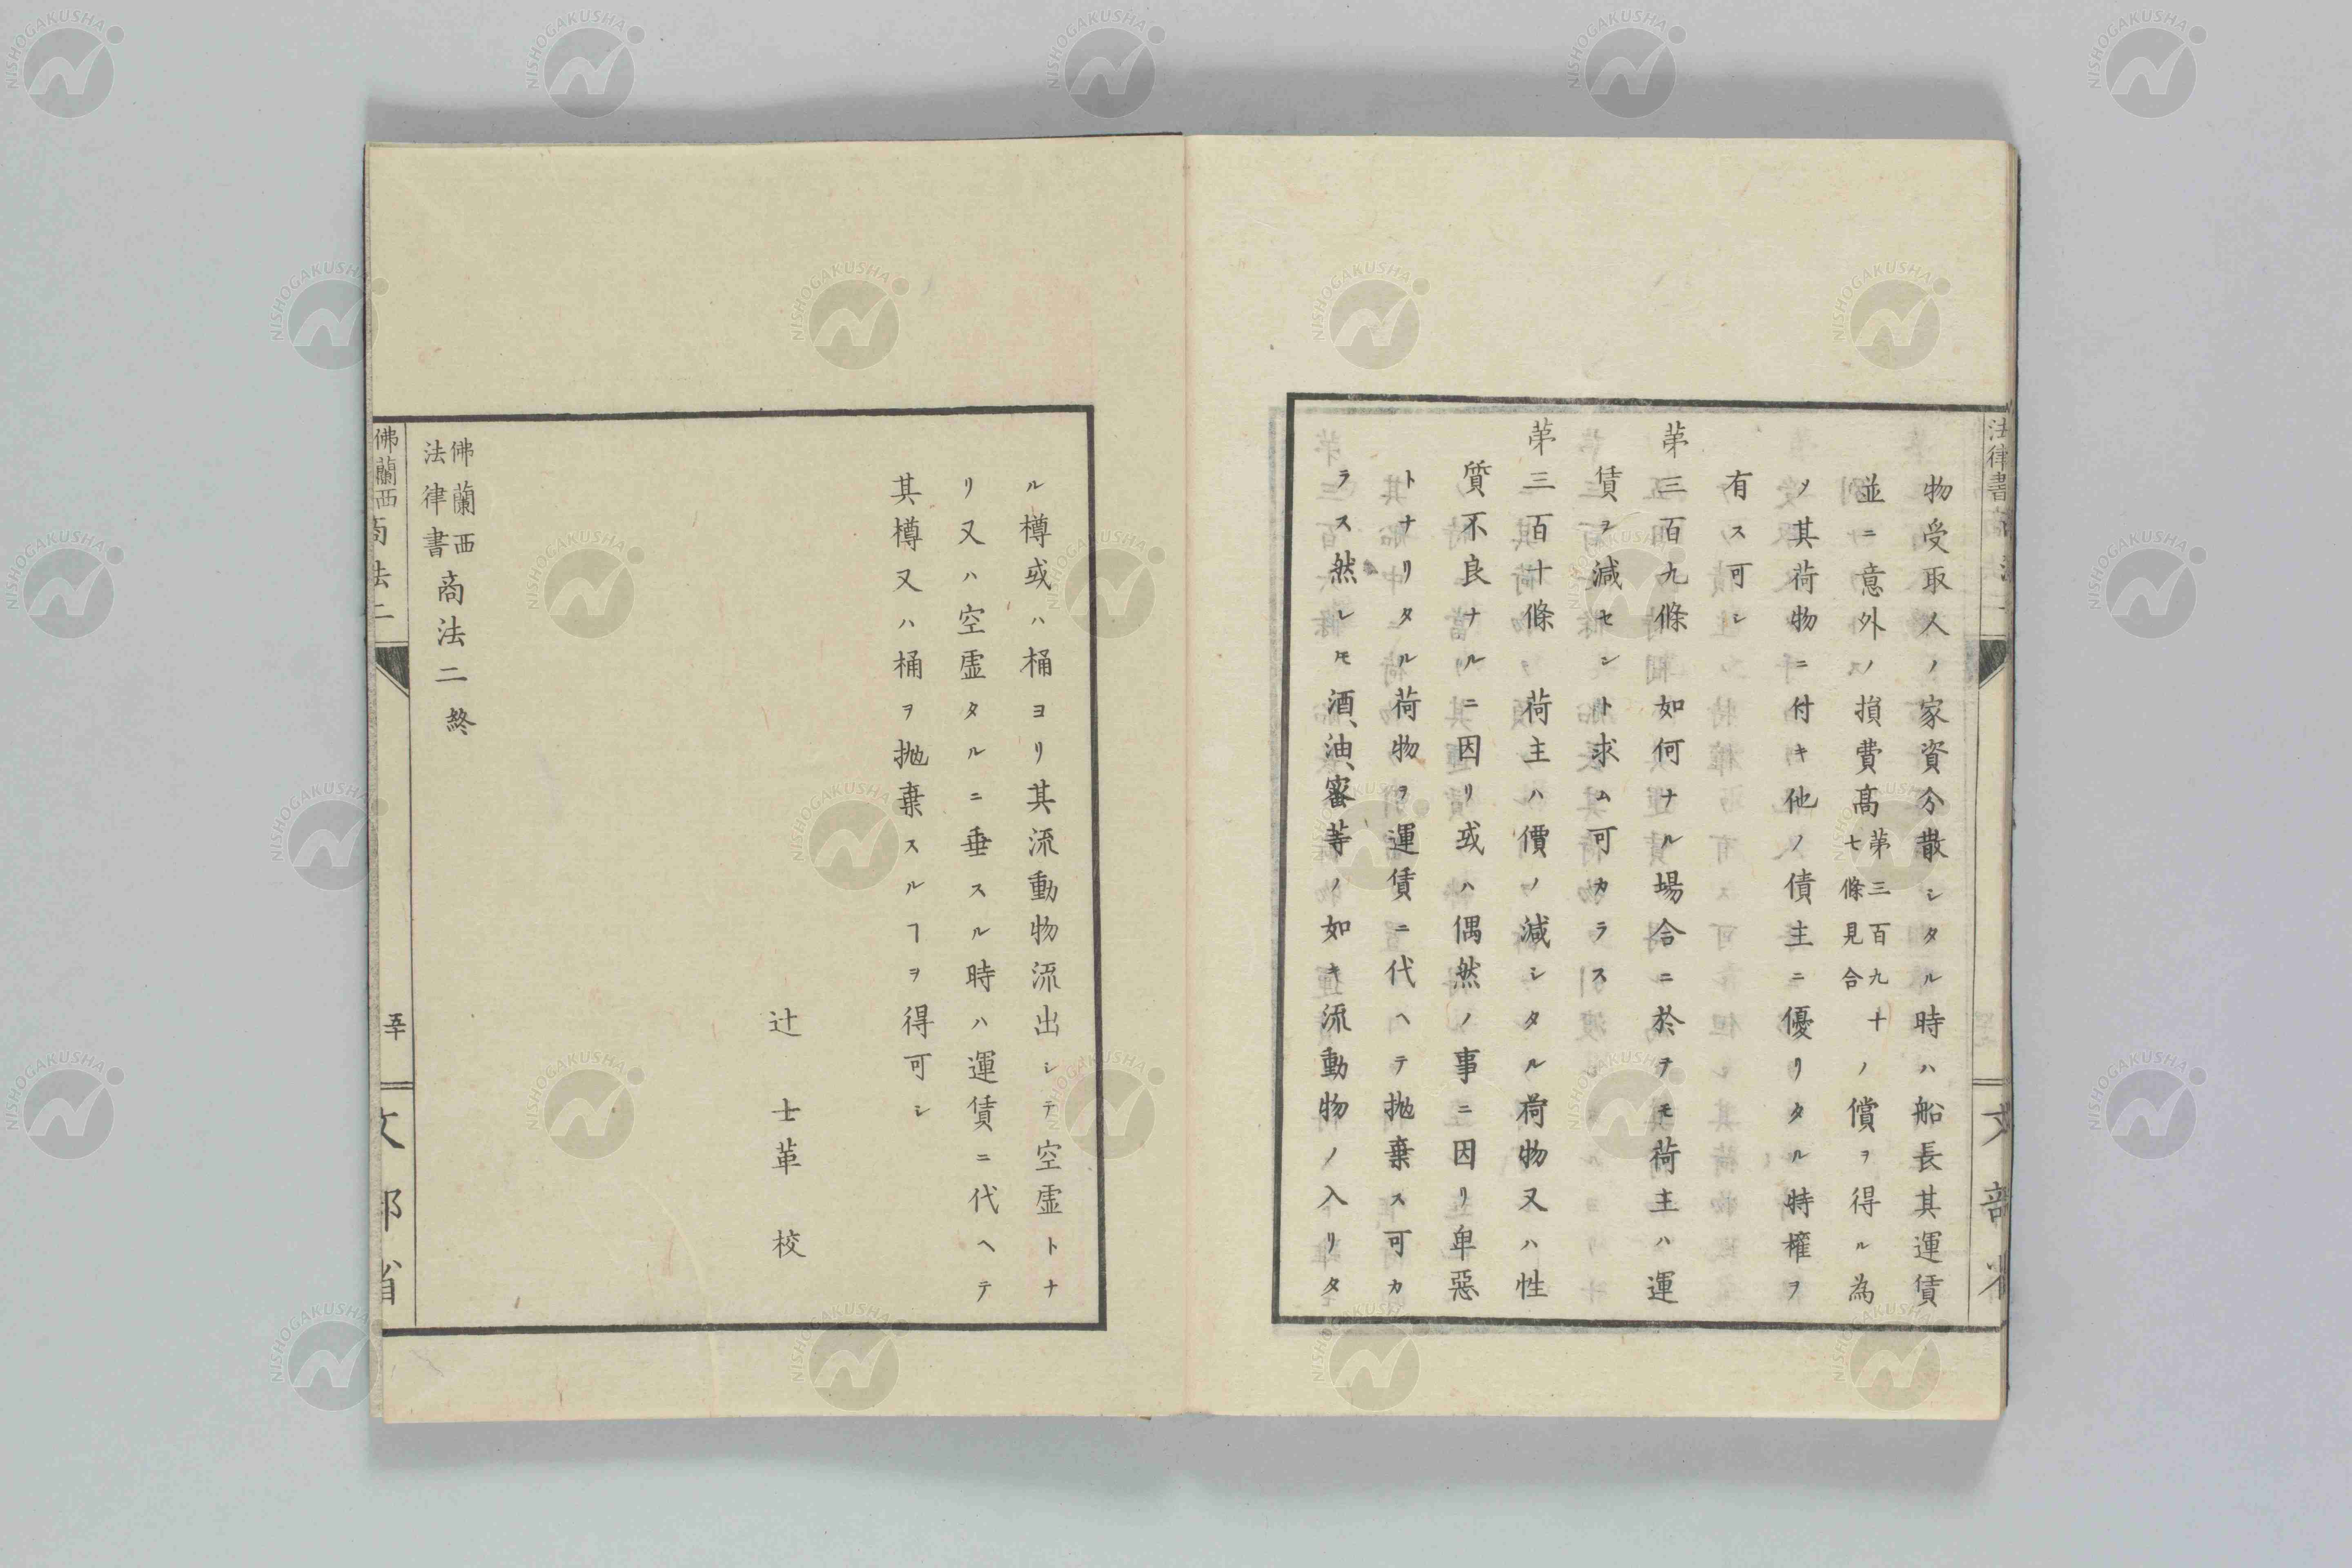 物受取人ノ家資分散シタル時ハ船長其運賃
並ニ意外ノ損費高第三百九十七條見合ノ償ヲ得ル為
ノ其荷物ニ付キ他ノ債主ニ優リタル特權ヲ
有ス可シ
第三百九條如何ナル場合ニ於テモ荷主ハ運
賃ヲ減センヿ求ム可カラス
第三百十條　荷主ハ價ノ減シタル荷物又ハ性
質不良ナルニ因リ或ハ偶然ノ事ニ因リ卑惡
トナリタル荷物ヲ運賃ニ代ヘテ抛棄ス可カ
ラス然レ𪜈酒、油、蜜等ノ如キ流動物ノ入リタ
ル樽或ハ桶ヨリ其流動物流出シテ空虚トナ
リ又ハ空虚タルニ垂スル時ハ運賃ニ代ヘテ
其樽又ハ桶ヲ抛棄スルヿヲ得可シ
辻　士革　校
佛蘭西法律書商法二終
佛蘭西商法二　五十　文部省
法律書　文部省
NISHOGAKUSHA